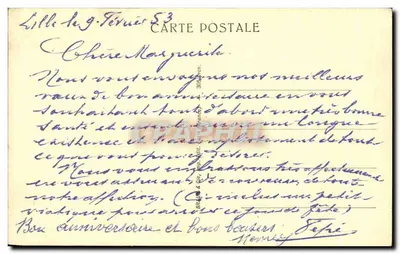 Lille le 9 Février 53
CARTE POSTALE
Chère Marguerite.
Nous vous envoyons nos meilleurs
vœux de bon anniversaire en vous
souhaitant tout d'abord une très bonne
santé et une longue
existence et tout de tout
ce que vous pouvez désirer.
Nous vous embrassons très affectueusement
en vous assurant de nouveau de toute
notre affection. (Ci-inclus un petit
pour ce jour de fête)
Bon anniversaire et bons baisers. Pépé